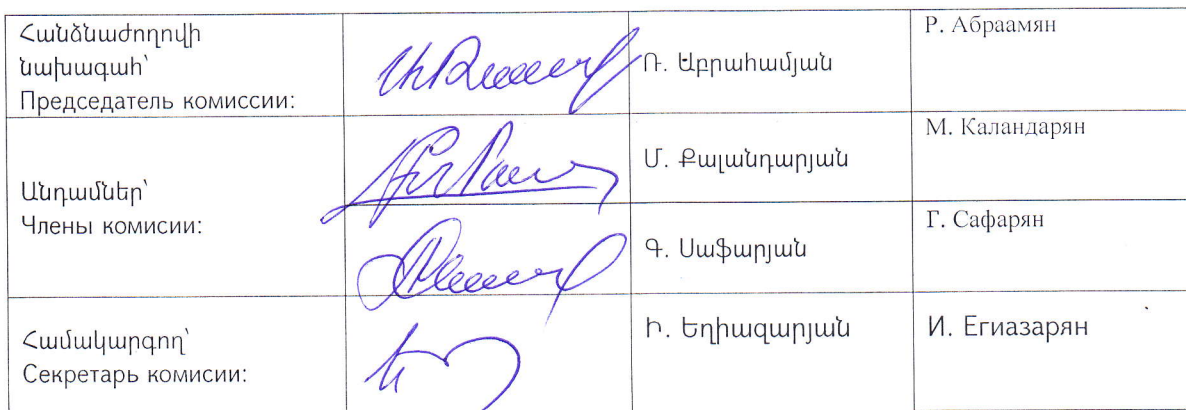 Հանձնաժողովի
նախագահ՝
Председатель комиссии:
Ռ. Աբրահամյան
Р. Абраамян
Անդամներ՝
Члены комисии:
Մ. Քալանդարյան
М. Каландарян
Գ. Սաֆարյան
Г. Сафарян
Համակարգող՝
Секретарь комисии:
Ի. Եղիազարյան
И. Егиазарян